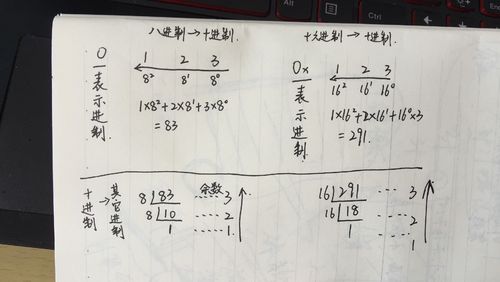 八进制→十进制.
O一表示进制.
1 2 3
8² 8¹ 8⁰
1×8²+2×8¹+3×8⁰
=83
十六进制→十进制.
Ox一表示进制.
1 2 3
16² 16¹ 16⁰
1×16²+2×16¹+16⁰×3
=291.
十进制→其它进制
余数
8 83 ...... 3
8 10 ...... 2
1 ...... 1.
16 291 ...... 3
16 18 ...... 2
1 ...... 1
Alt
Ctrl